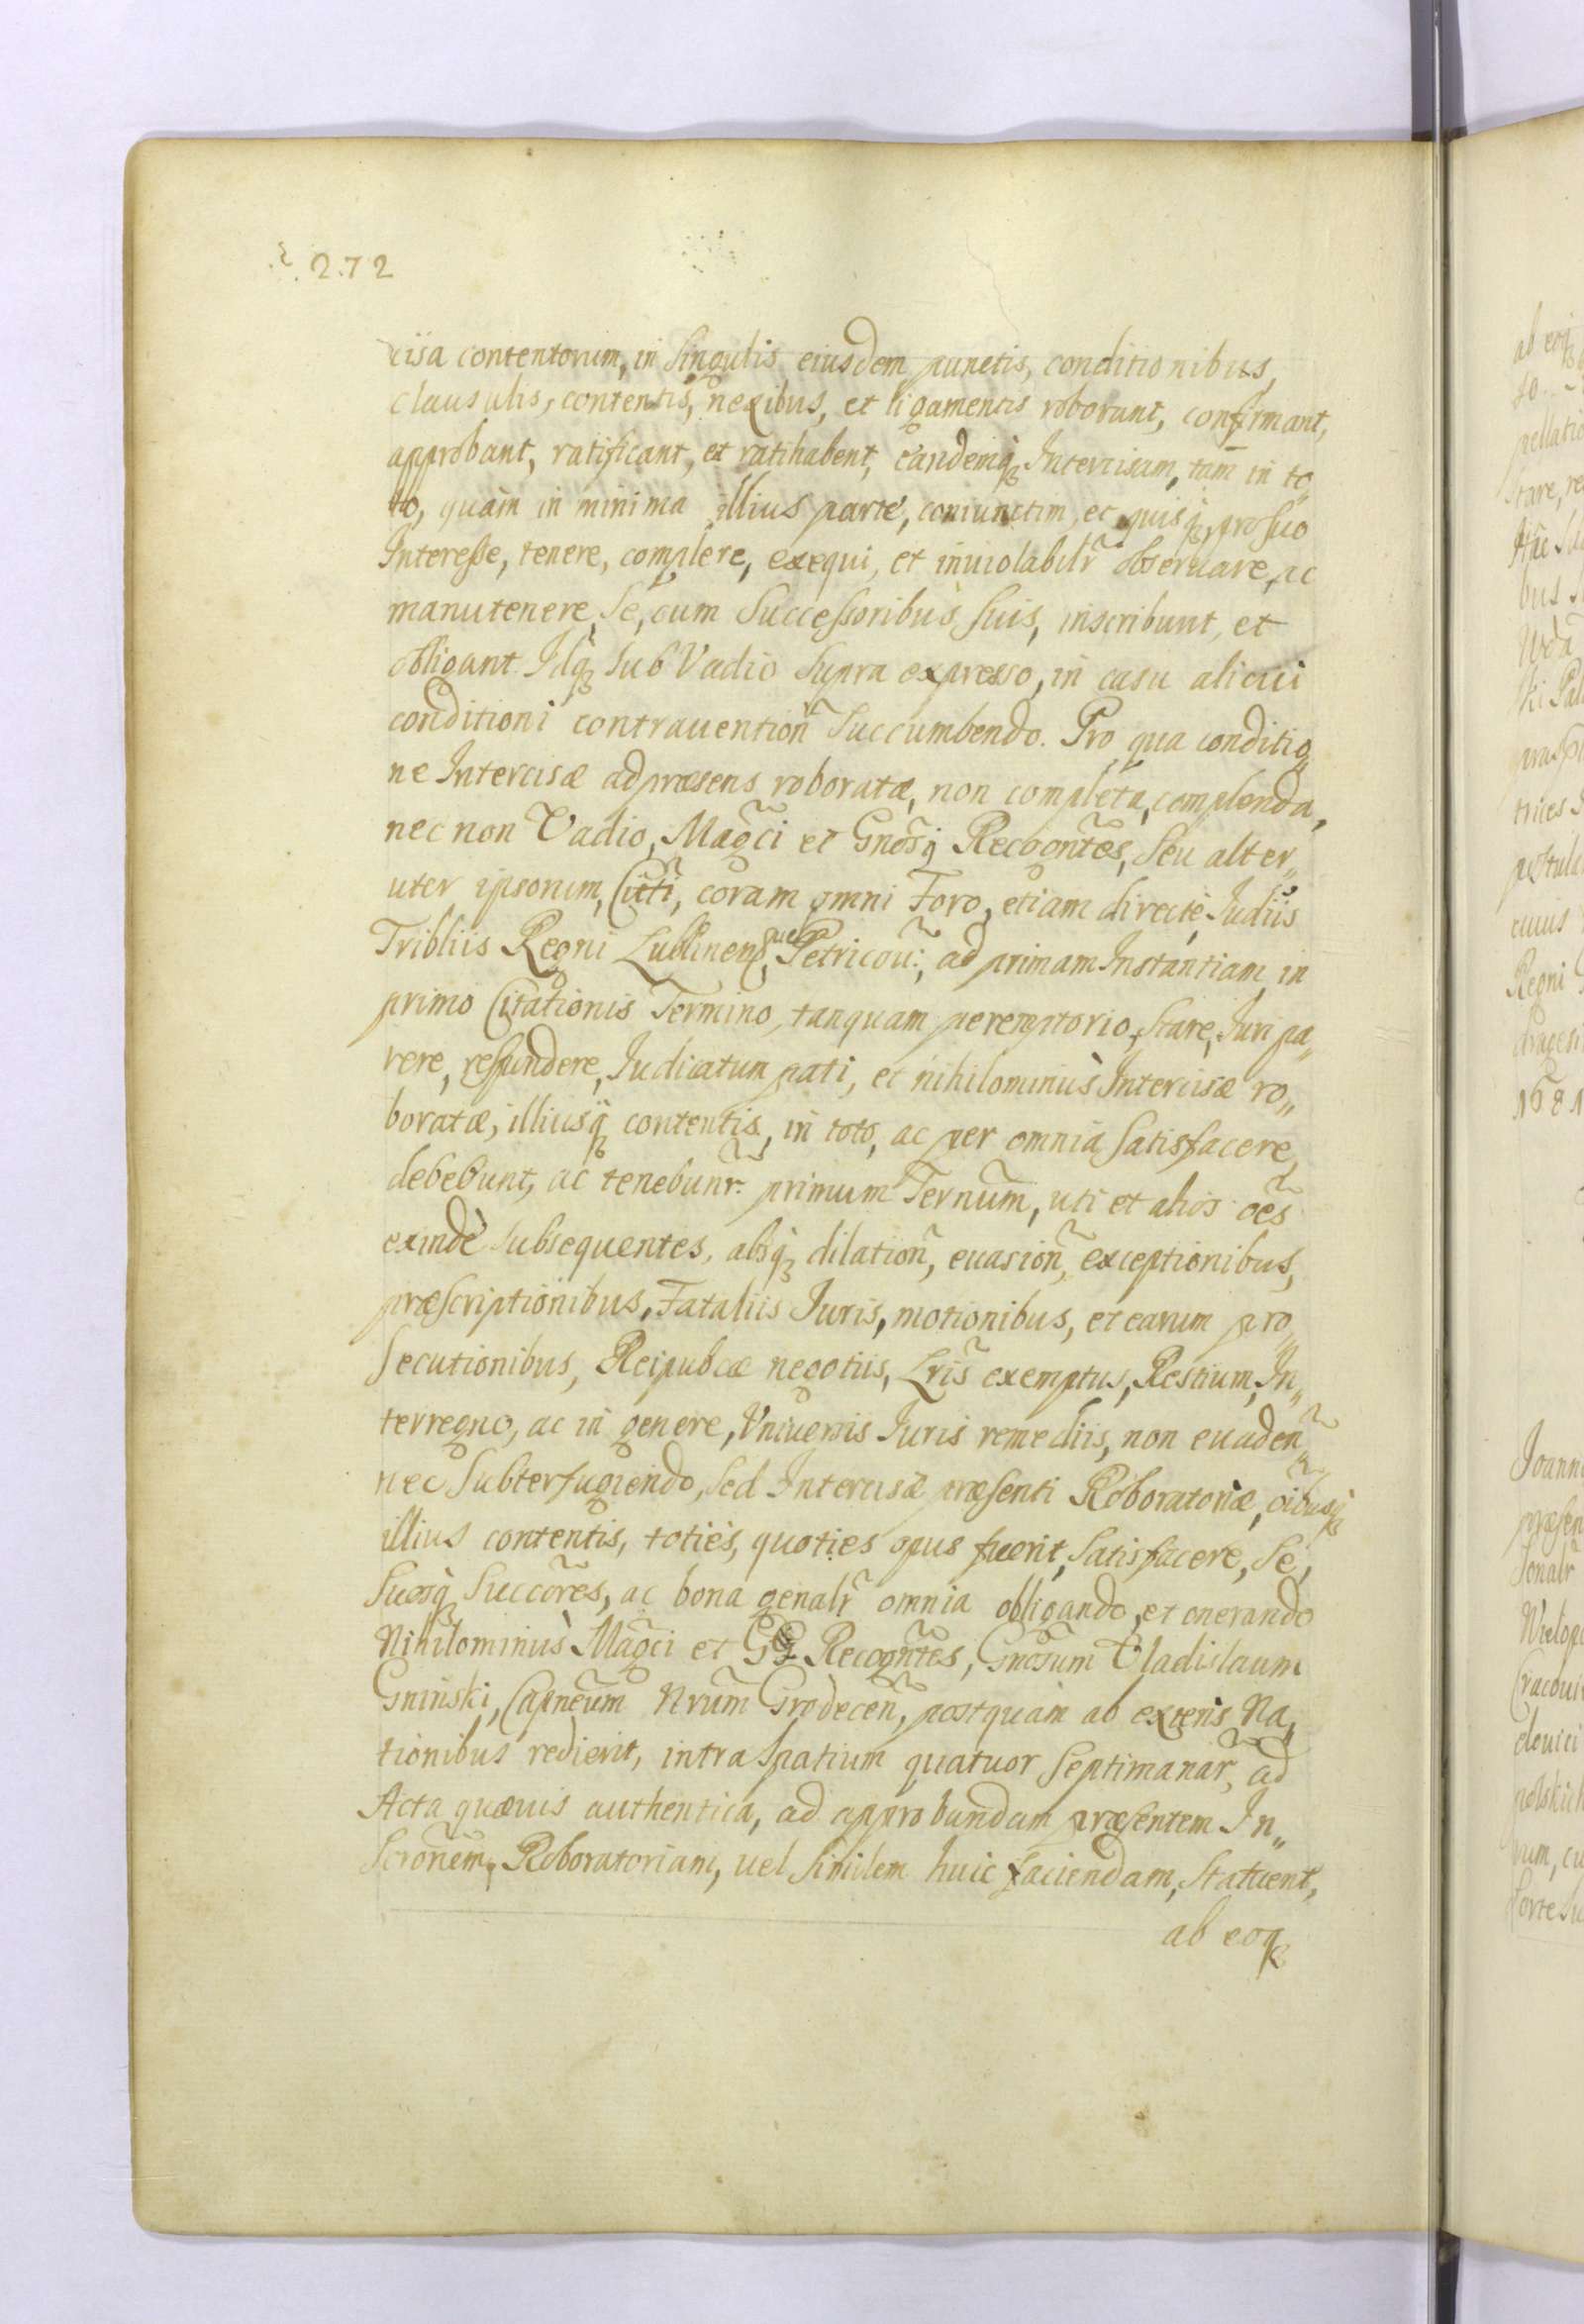 272
cisa contentorum, in singulis eiusdem punctis, conditionibus,
clausulis, contentis, nexibus, et ligamentis roborant, confirmant,
approbant, ratificant, et ratihabent, eandemq Intercisam, tam in to„
to, quàm in minima illius parte, coniunctim, et quisq pro suo
Interesse, tenere, complere, exequi, et inuiolabilr obseruare, ac
manutenere, se, cum Successoribus suis, inscribunt, et
obligant. Idq sub Vadio supra expresso, in casu alicui
conditioni contrauention succumbendo. Pro qua conditio„
ne Intercisæ ad præsens roboratæ, non completa, complenda,
nec non Vadio, Magci et Gnosiq Recogntes, seu alter„
uter ipsorum, Citti, coram omni Foro, etiam directè Iudiis
Tribliis Regni Lublinen, uel Petricou:, ad primam Instantiam, in
primo Citationis Termino, tanquam peremptorio, stare, Iuri pa„
rere, respondere, Iudicatum pati, et nihilominùs Intercisæ ro„
boratæ, illiusq contentis, in toto, ac per omnia satisfacere,
debebunt, ac tenebunr. primum Ternum, uti et alios oes
exindè subsequentes, absq dilation, euasion, exceptionibus,
præscriptionibus, Fataliis Iuris, motionibus, et earum pro„
secutionibus, Reipubcæ negotiis, Lris exemptus, Restium, In„
terregno, ac in genere, Vniuersis Iuris remediis, non euaden„
nec subterfugiendo, sed Intercisæ præsenti Roboratoriæ, oibusq
illius contentis, toties, quoties opus fuerit, satisfacere, se,
suosq succores, ac bona genalr omnia obligando, et onerando
Nihilominùs Magci et GG Recogntes, Gnosum Vladislaum
Gninski, Capneum Nrum Grodecen, postquàm ab exteris Na„
tionibus redierit, intra spatium quatuor septimanar, ad
Acta quæuis authentica, ad approbandam præsentem In„
scronem, Roboratoriam, uel similem huic faciendam, statuent,
ab eoq